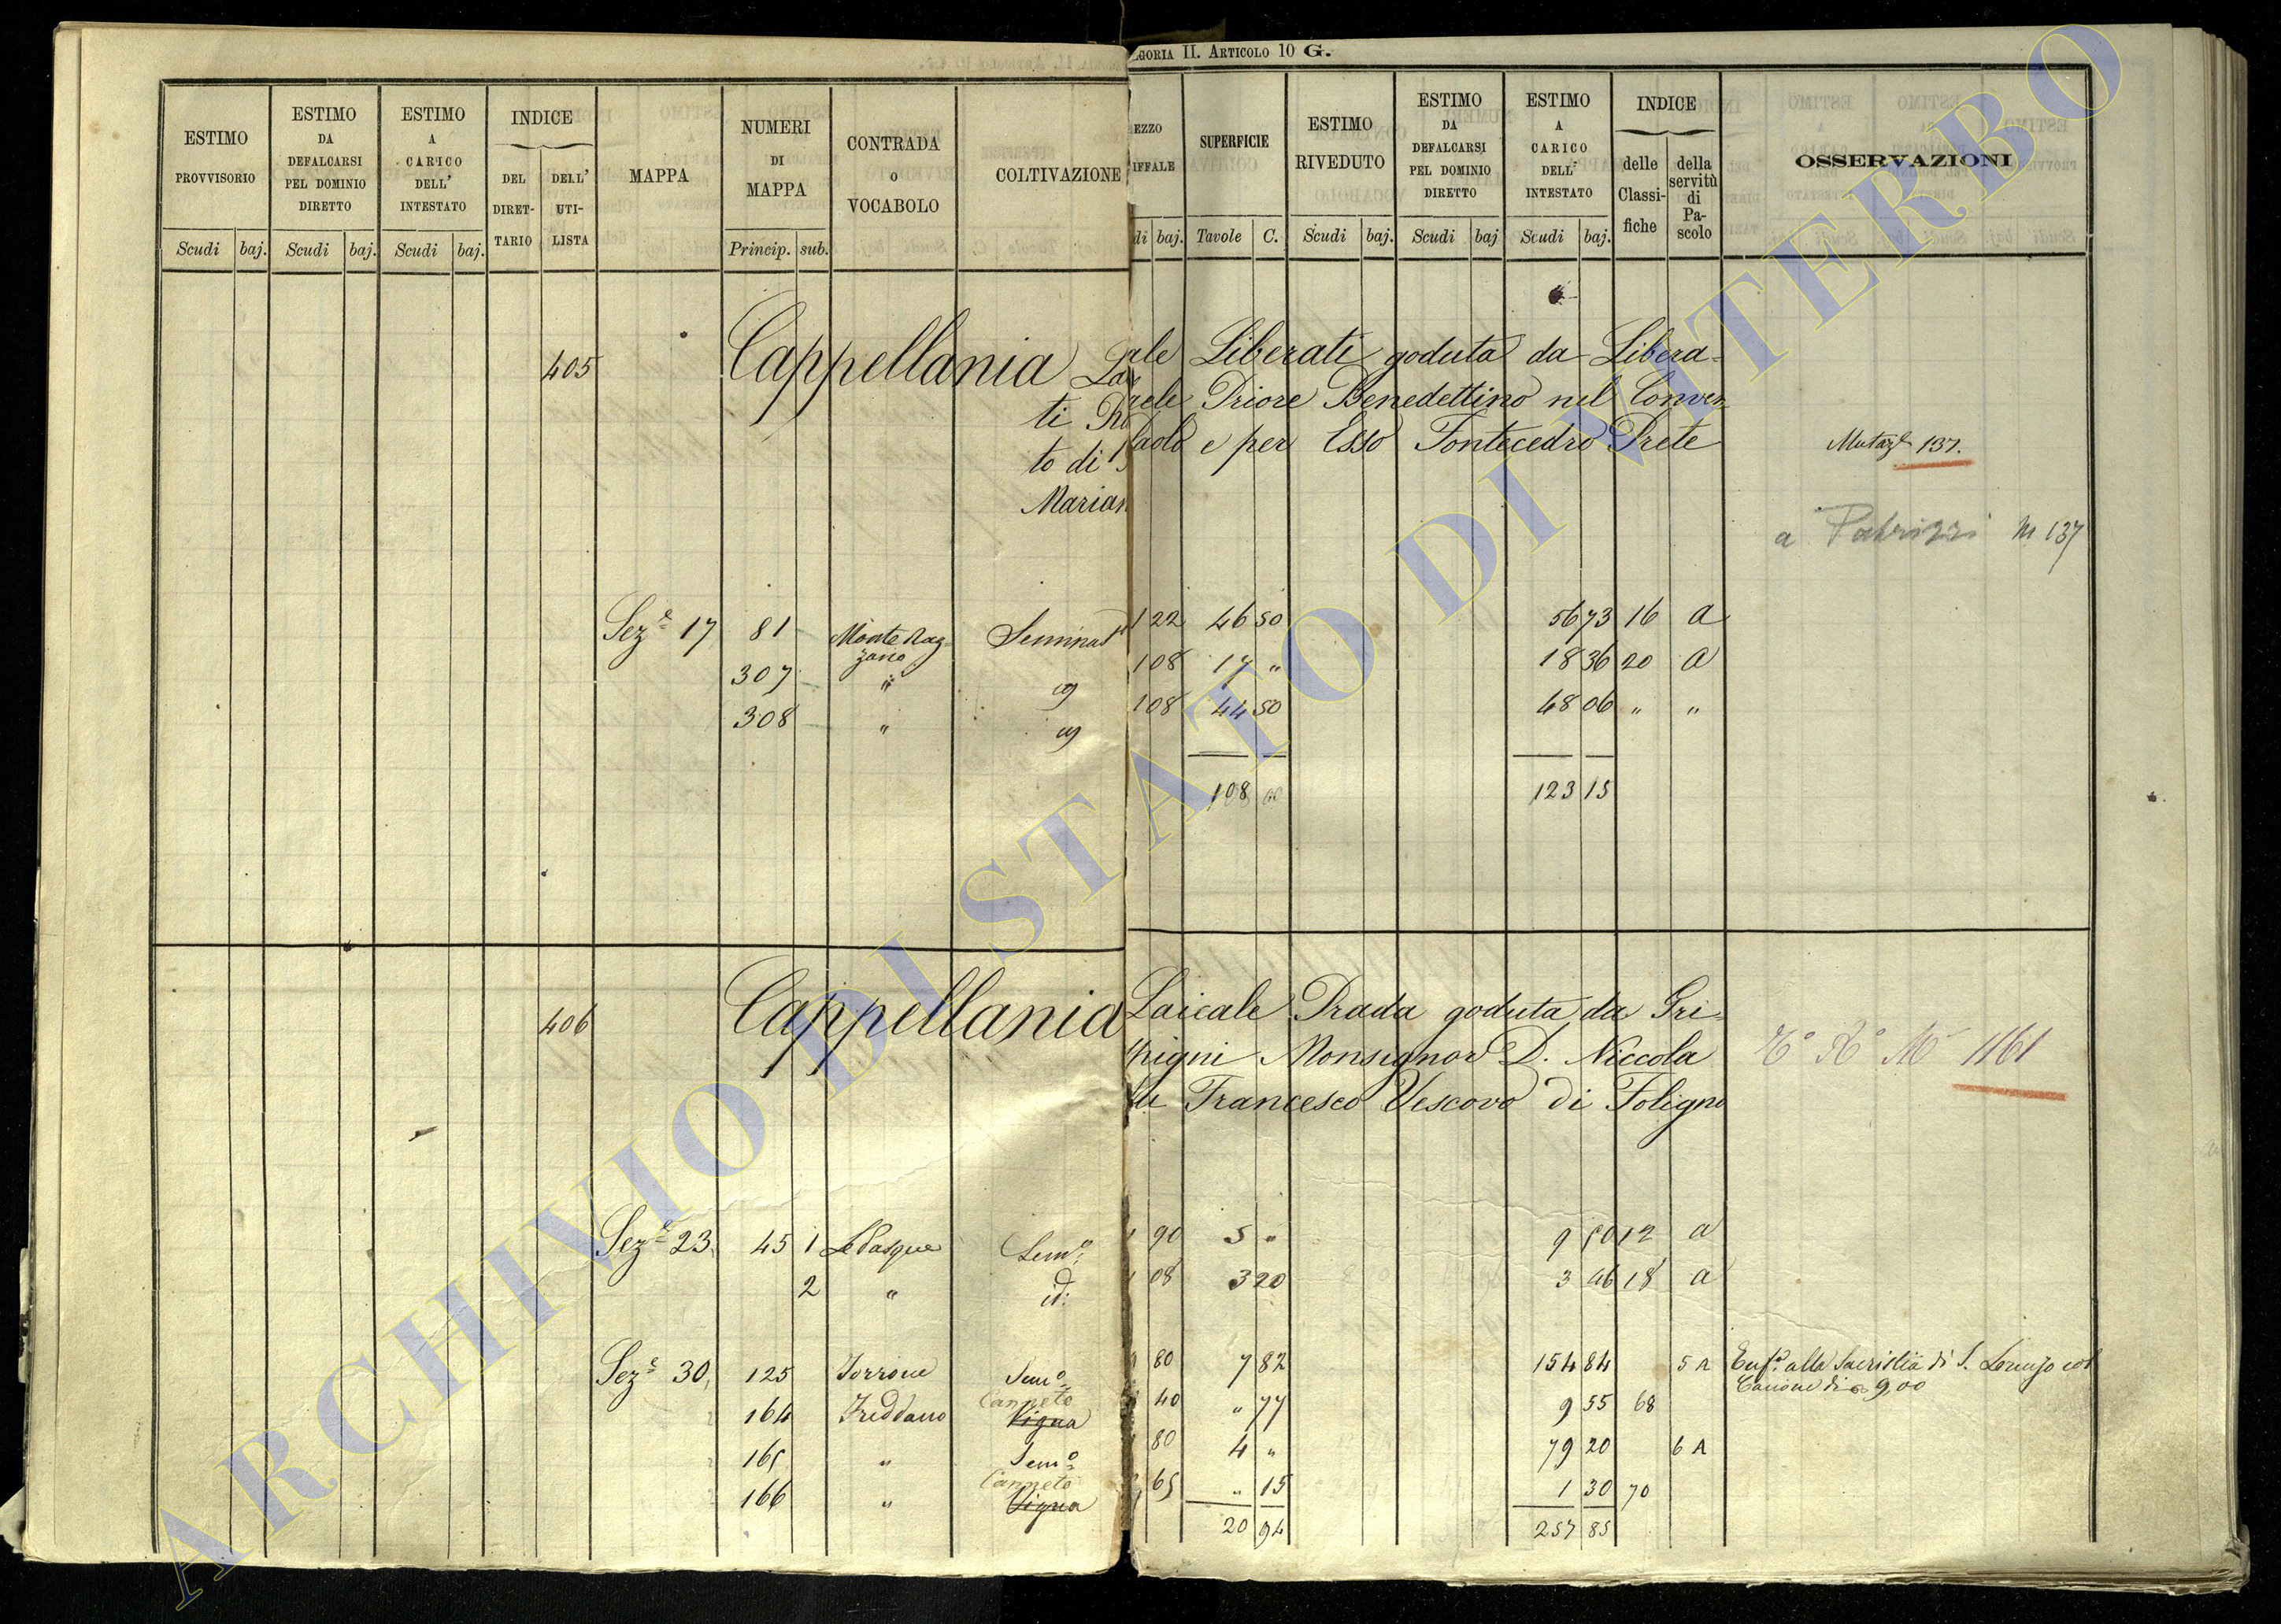 EGORIA II. ARTICOLO 10 G.
ESTIMO PROVVISORIO
ESTIMO DA DEFALCARSI PEL DOMINIO DIRETTO
ESTIMO A CARICO DELL' INTESTATO
INDICE
DEL DIRET-TARIO
DELL' UTI-LISTA
MAPPA
NUMERI DI MAPPA
CONTRADA O VOCABOLO
COLTIVAZIONE
EZZO IFFALE
SUPERFICIE
ESTIMO RIVEDUTO
ESTIMO DA DEFALCARSI PEL DOMINIO DIRETTO
ESTIMO A CARICO DELL' INTESTATO
INDICE
delle Classi-fiche
della servitù di Pa-scolo
OSSERVAZIONI
Scudi baj. Scudi baj. Scudi baj. Princip. sub.
di baj. Tavole C. Scudi baj. Scudi baj Scudi baj.
405 Cappellania La ale Liberati goduta da Libera=
ti Ra ele Priore Benedettino nel Conven
to di Paolo e per Esso Fontecedro Prete
Marian
Mutaz 137.
a Patrizzi M 137
Sez.e 17 81 Monte Raz= Seminat 1 22 46 50 56 73 16 a
zano
307 " 108 17 " 18 36 20 a
308 " 108 44 50 48 06 " "
108 00 123 15
406 Cappellania Laicale Prada goduta da Gri=
spigni Monsignor D. Niccola
Francesco Vescovo di Foligno
1161
Sez.e 23 45 1 Le Pasque Sem.o 90 5 " 9 50 12 a
2 " id: 08 3 20 3 46 18 a
Sez.e 30, 125 Torrone Sem.o 80 7 82 154 84 5 A Enf.a alla Sacristia di S. Lorenzo col
Canone di 9,00
Canneto
164 Freddano Vigna 40 " 77 9 55 68
165 " Sem.o 80 4 " 79 20 6 A
Canneto
166 " Vigna 65 " 15 1 30 70
20 94 257 85
ARCHIVIO DI STATO DI VITERBO